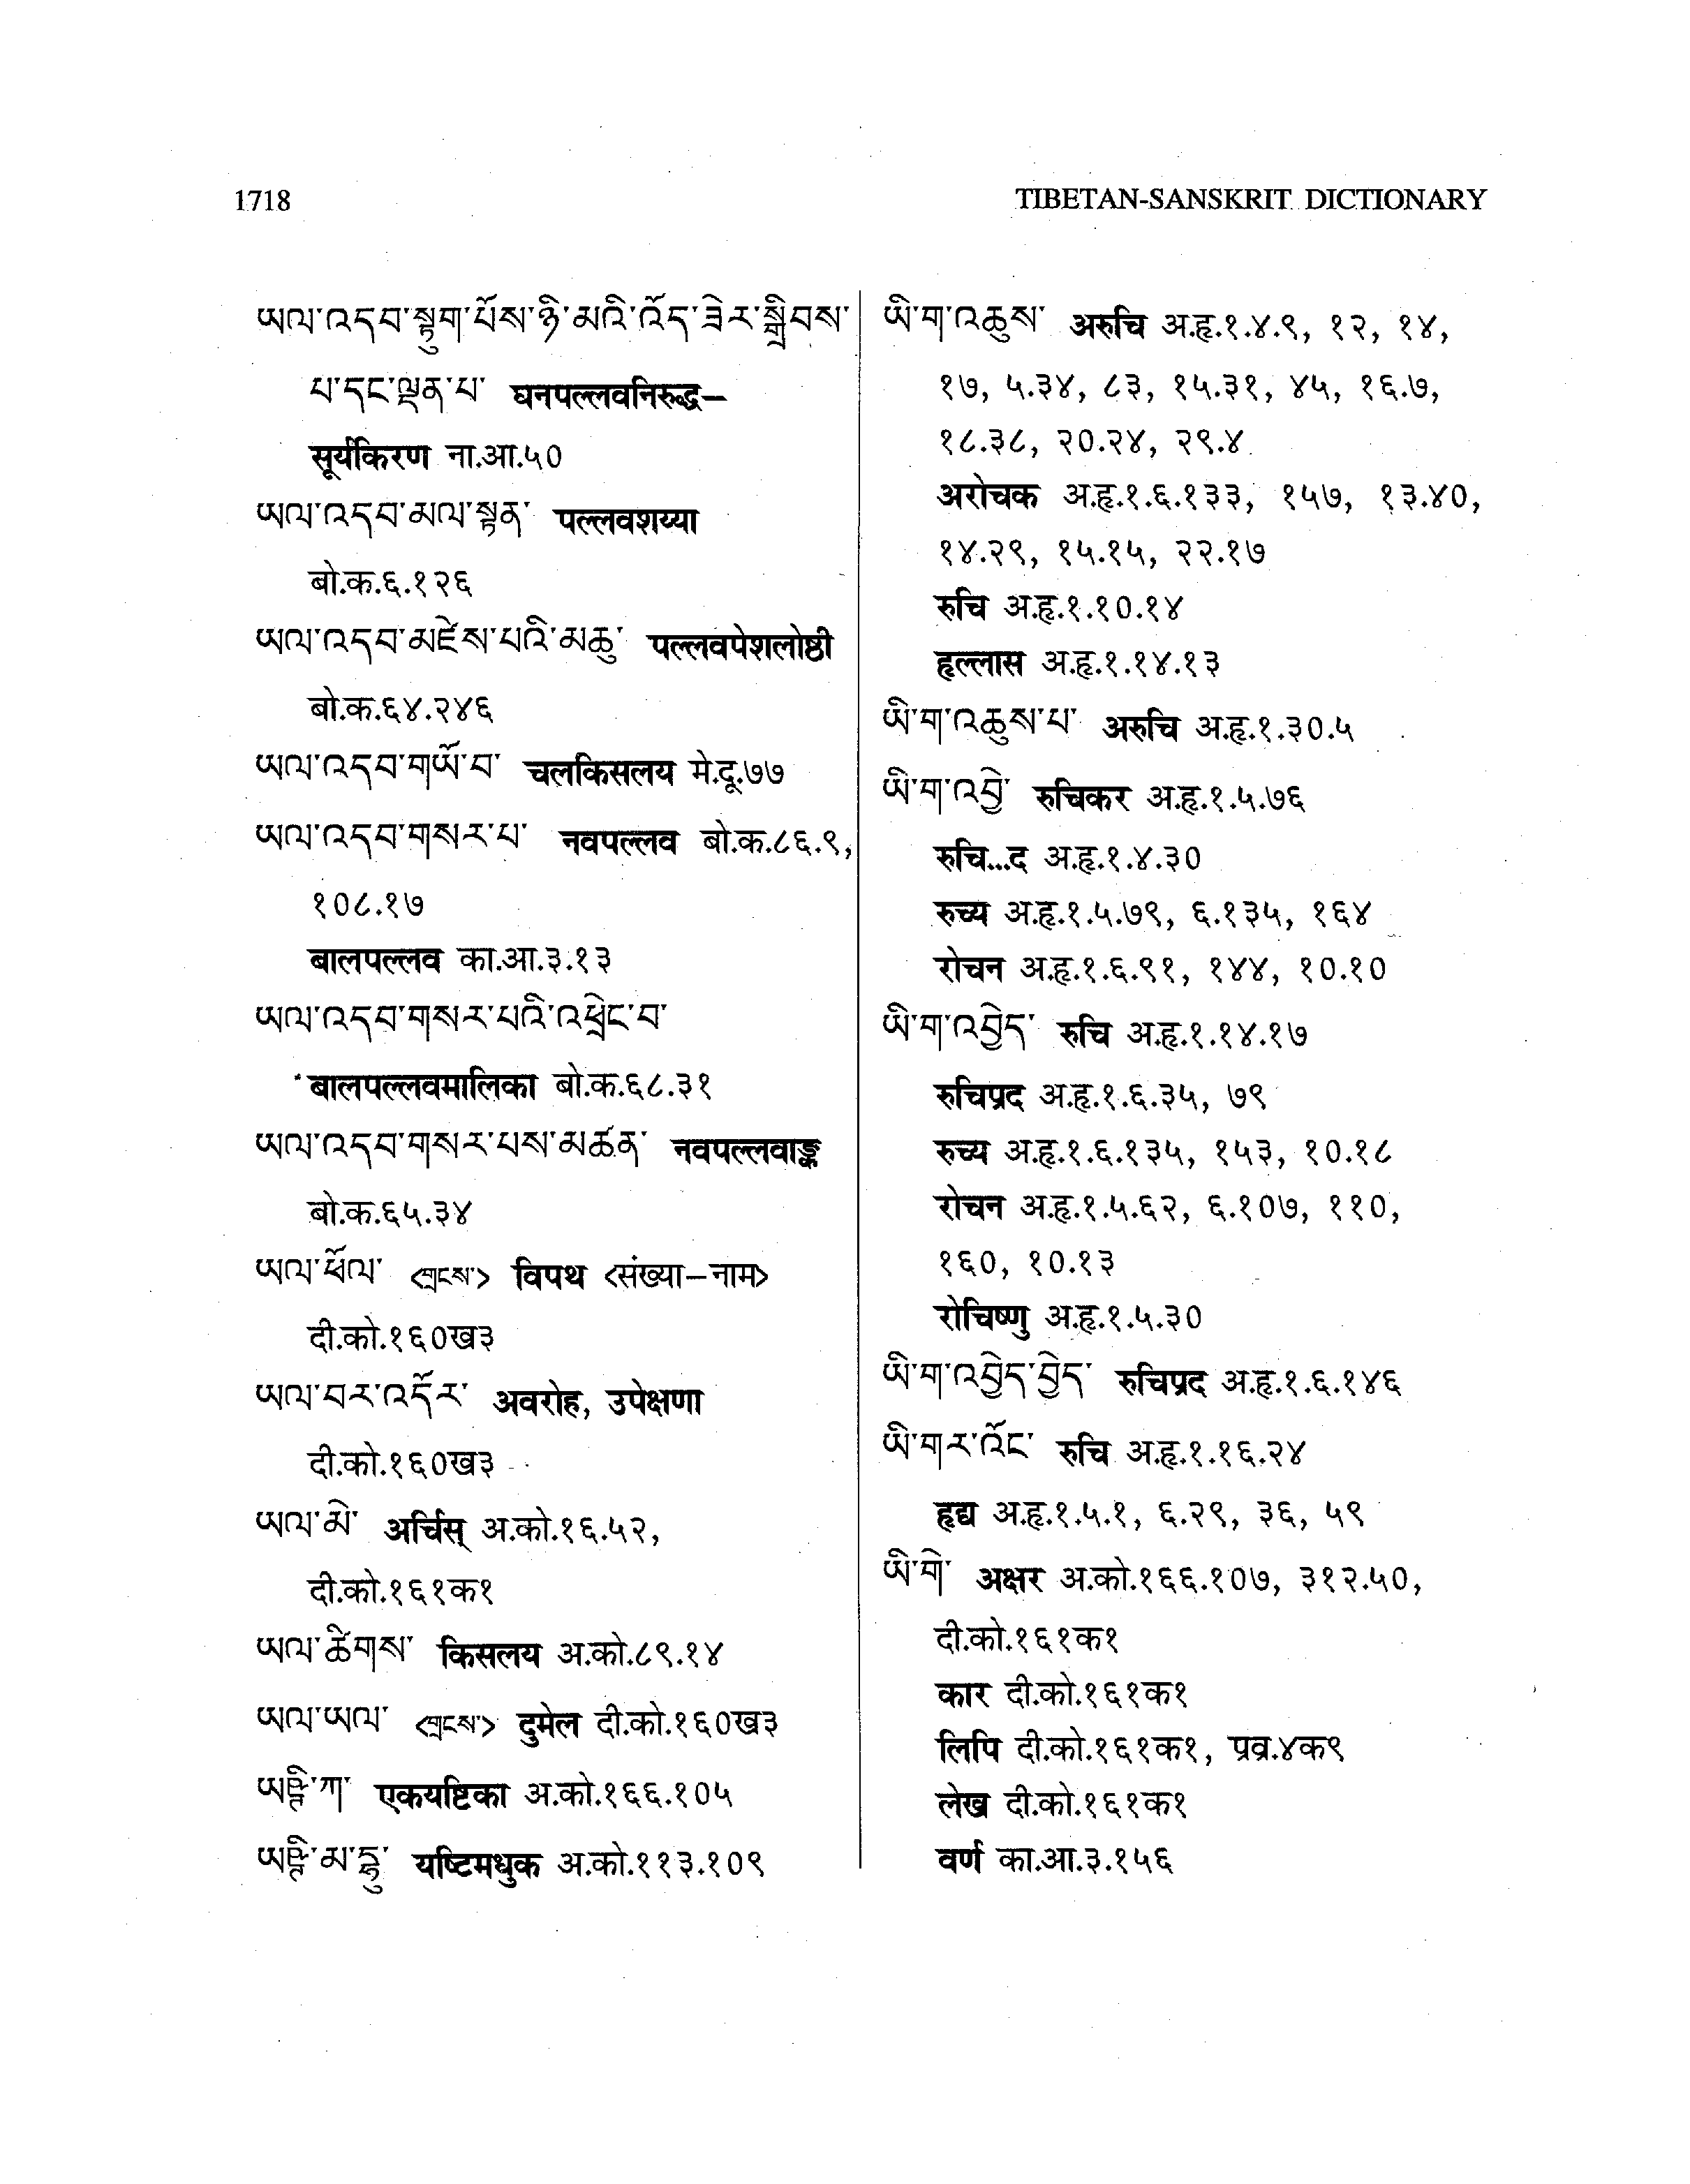 1718
TIBETAN-SANSKRIT DICTIONARY
ཡལ་འདབ་སྟུག་པོས་ཉི་མའི་འོད་ཟེར་སྒྲིབས་
པ་དང་ལྡན་པ་ घनपल्लवनिरुद्ध–
सूर्यकिरण ना.आ.५०
ཡལ་འདབ་མལ་སྟན་ पल्लवशय्या
बो.क.६.१२६
ཡལ་འདབ་མཛེས་པའི་མཆུ་ पल्लवपेशलोष्ठी
बो.क.६४.२४६
ཡལ་འདབ་གཡོ་བ་ चलकिसलय मे.दू.७७
ཡལ་འདབ་གསར་པ་ नवपल्लव बो.क.८६.९,
१०८.१७
बालपल्लव का.आ.३.१३
ཡལ་འདབ་གསར་པའི་འཕྲེང་བ་
बालपल्लवमालिका बो.क.६८.३१
ཡལ་འདབ་གསར་པས་མཚན་ नवपल्लवाङ्क
बो.क.६५.३४
ཡལ་ཕོལ་ <གྲངས་> विपथ <संख्या–नाम>
दी.को.१६०ख३
ཡལ་བར་འདོར་ अवरोह, उपेक्षणा
दी.को.१६०ख३
ཡལ་མེ་ अर्चिस् अ.को.१६.५२,
दी.को.१६१क१
ཡལ་ཚིགས་ किसलय अ.को.८९.१४
ཡལ་ཡལ་ <གྲངས་> दुमेल दी.को.१६०ख३
ཡཥྚི་ཀ་ एकयष्टिका अ.को.१६६.१०५
ཡཥྚི་མ་དྷུ་ यष्टिमधुक अ.को.११३.१०९
ཡི་ག་འཆུས་ अरुचि अ.हृ.१.४.९, १२, १४,
१७, ५.३४, ८३, १५.३१, ४५, १६.७,
१८.३८, २०.२४, २९.४
अरोचक अ.हृ.१.६.१३३, १५७, १३.४०,
१४.२९, १५.१५, २२.१७
रुचि अ.हृ.१.१०.१४
हृल्लास अ.हृ.१.१४.१३
ཡི་ག་འཆུས་པ་ अरुचि अ.हृ.१.३०.५
ཡི་ག་འབྱེ་ रुचिकर अ.हृ.१.५.७६
रुचि...द अ.हृ.१.४.३०
रुच्य अ.हृ.१.५.७९, ६.१३५, १६४
रोचन अ.हृ.१.६.९१, १४४, १०.१०
ཡི་ག་འབྱེད་ रुचि अ.हृ.१.१४.१७
रुचिप्रद अ.हृ.१.६.३५, ७९
रुच्य अ.हृ.१.६.१३५, १५३, १०.१८
रोचन अ.हृ.१.५.६२, ६.१०७, ११०,
१६०, १०.१३
रोचिष्णु अ.हृ.१.५.३०
ཡི་ག་འབྱེད་བྱེད་ रुचिप्रद अ.हृ.१.६.१४६
ཡི་གར་འོང་ रुचि अ.हृ.१.१६.२४
हृद्य अ.हृ.१.५.१, ६.२९, ३६, ५९
ཡི་གེ་ अक्षर अ.को.१६६.१०७, ३१२.५०,
दी.को.१६१क१
कार दी.को.१६१क१
लिपि दी.को.१६१क१, प्रव्र.४क९
लेख दी.को.१६१क१
वर्ण का.आ.३.१५६